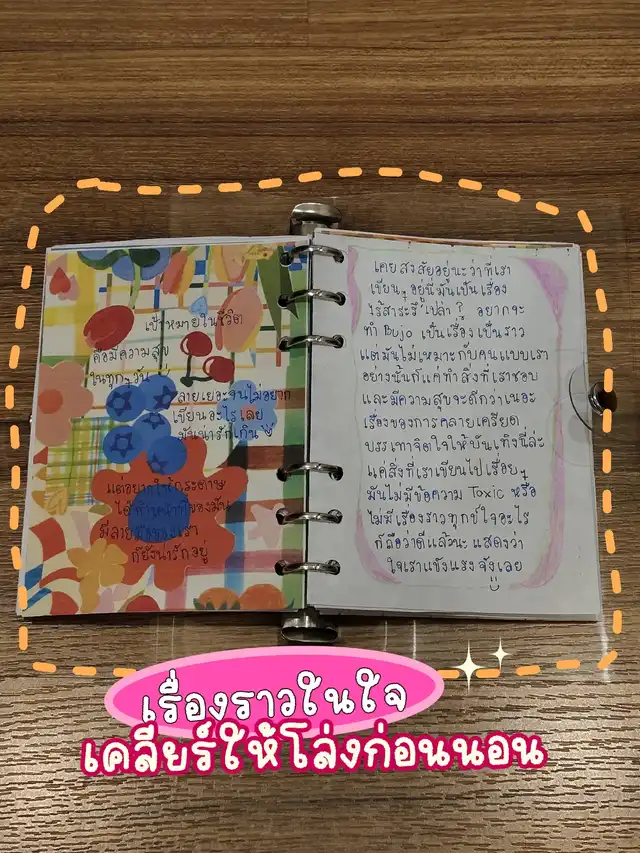 เป้าหมายในชีวิต
คือมีความสุข
ในทุกๆวัน
ลายเยอะจนไม่อยาก
เขียนอะไรเลย
มันน่ารักเกิน
แต่อยากให้กระดาษ
ได้ทำหน้าที่ของมัน
มีลายมือของเรา
ก็ยังน่ารักอยู่
เคยสงสัยอยู่นะว่าที่เรา
เขียนๆอยู่นี่มันเป็นเรื่อง
ไร้สาระรึเปล่า? อยากจะ
ทำ Bujo เป็นเรื่องเป็นราว
แต่มันไม่เหมาะกับคนแบบเรา
อย่างงั้นก็แค่ทำสิ่งที่เราชอบ
และมีความสุขจะดีกว่าเนอะ
เรื่องของการคลายเครียด
บรรเทาจิตใจให้บันเทิงนี่ล่ะ
แค่สิ่งที่เราเขียนไปเรื่อยๆ
มันไม่มีข้อความ Toxic หรือ
ไม่มีเรื่องราวทุกข์ใจอะไร
ก็ถือว่าดีแล้วนะ แสดงว่า
ใจเราแข็งแรงจังเลย
เรื่องราวในใจ
เคลียร์ให้โล่งก่อนนอน